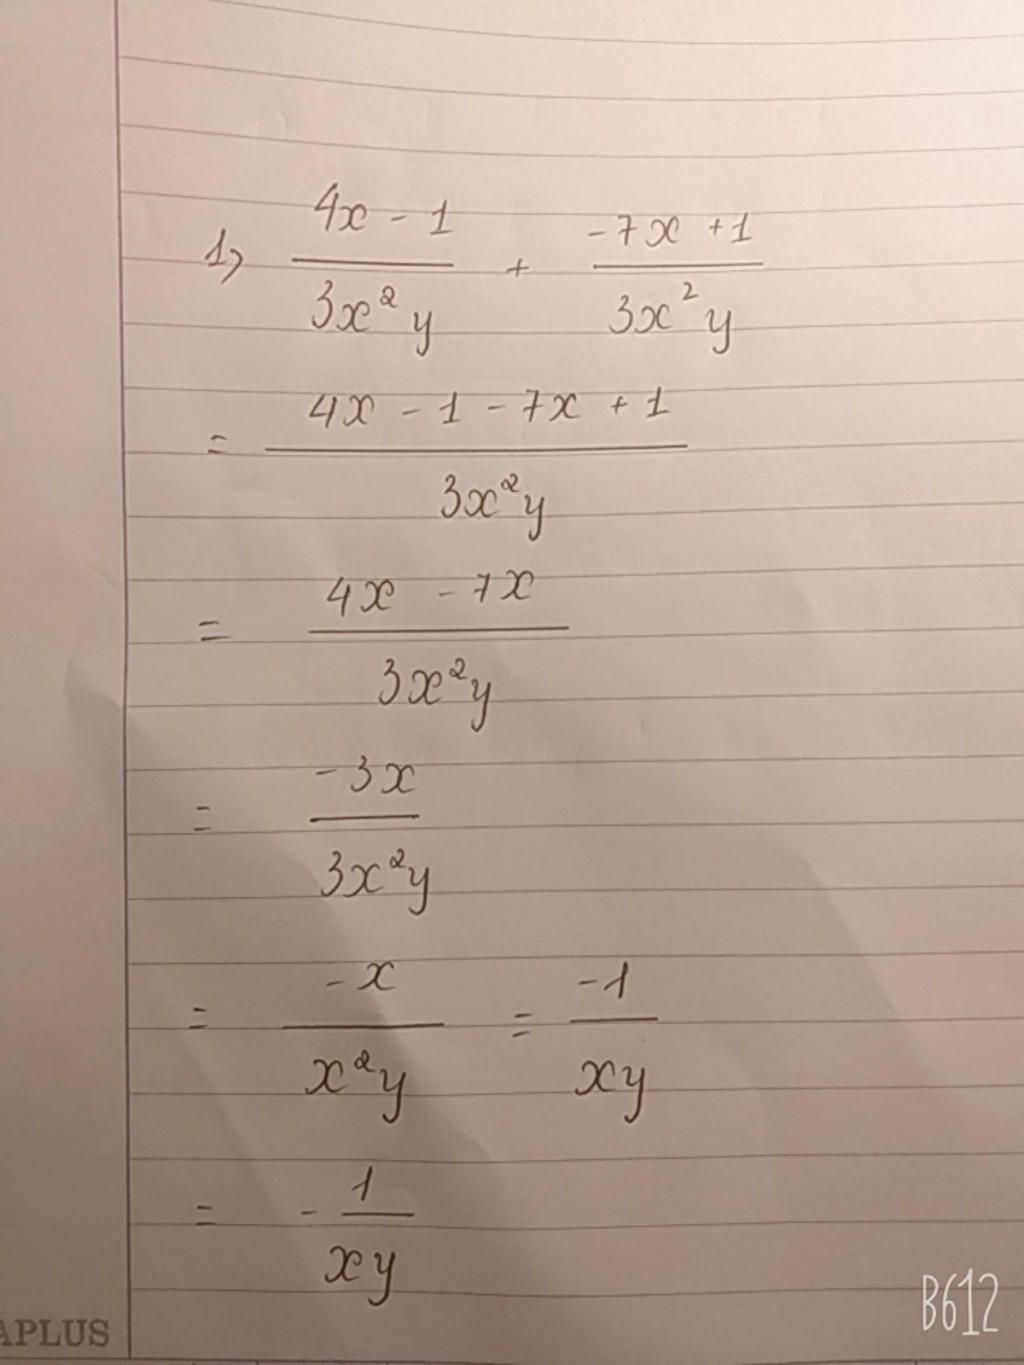 1) (4x - 1)/(3x²y) + (-7x + 1)/(3x²y)
= (4x - 1 - 7x + 1)/(3x²y)
= (4x - 7x)/(3x²y)
= (-3x)/(3x²y)
= (-x)/(x²y) = (-1)/(xy)
= - 1/(xy)
B612
APLUS